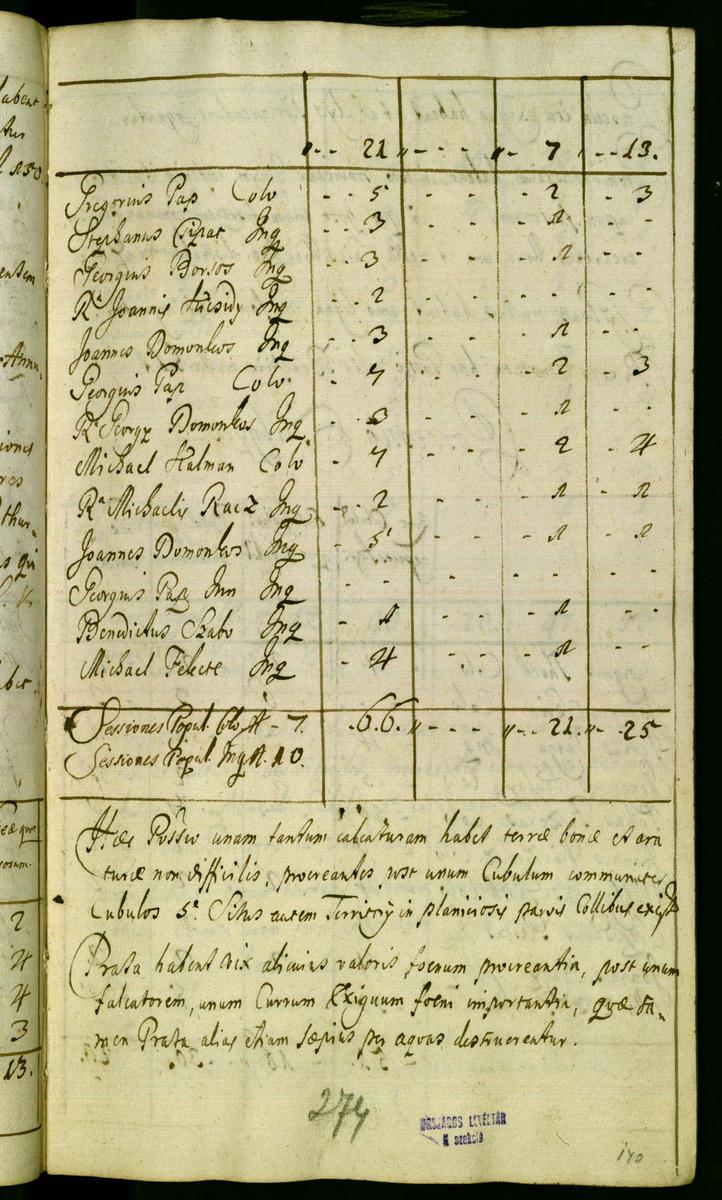 "-- 21 "---- "- 7 --13.
Gregorius Pap Colo -- 5 - - - - 2 - 3
Stephanus Csipar Inq -- 3 - - - - 1 - -
Georgius Borsos Inq -- 3 - - - - 1 - -
Ra Joannis Inq -- 2 - - - - - - -
Joannes Domonkos Inq -- 3 - - - - 1 - -
Georgius Pap Colo - 7 - - - - 2 - 3
Ra Georgy Domonkos Inq - 3 - - - - 1 - -
Michael Halman Colo - 7 - - - - 2 - 4
Ra Michaelis Racz Inq - 2 - - - - 1 - 1
Joannes Domonkos Inq - 5 - - - - 1 - 1
Georgius Pap Jun Inq - - - - - - - - -
Benedictus Szabo Inq - 1 - - - - 1 - -
Michael Fekete Inq - 4 - - - - 1 - -
Sessiones Popul. Colo. - 7. .66. "--- "- 21. "- 25
Sessiones Popul. Inq. 10.
Haec Possio unam tantum calcaturam habet terræ bonæ et ara
turæ non difficilis, procreantes post unum Cubulum communiter
Cubulos 5. Situs autem Territorÿ in planiciosis parvis Collibus
Prata habent vix alicuius valoris foenum procreantia, post unum
falcatorem, unum Currum Exiguum foeni importantia, quæ ta-
men Prata alias etiam sæpius per aquas destruerentur.
274
ORSZÁGOS LEVÉLTÁR
N szekció
140
labent
150
entem
2
4
4
3
13.